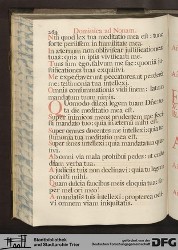 284 Dominica ad Nonam.
Nisi quod lex tua meditatio mea est: tunc
forte perissem in humilitate mea.
In eternum non obliviscar iustificationes
tuas: quia in ipsis vivificasti me.
Tuus sum ego, salvum me fac: quoniam iu-
stificationes tuas exquisivi.
Me expectaverunt peccatores ut perderent
me: testimonia tua intellexi.
Omnis consummationis vidi finem: latum
mandatum tuum nimis.
Quomodo dilexi legem tuam Domi-
ne: tota die meditatio mea est.
Super inimicos meos prudentem me fecis-
ti mandato tuo: quia in eternum mihi est.
Super omnes docentes me intellexi: quia te-
stimonia tua meditatio mea est.
Super senes intellexi: quia mandata tua
quesivi.
Ab omni via mala prohibui pedes meos: ut custo-
diam verba tua.
A judiciis tuis non declinavi: quia tu legem
posuisti mihi.
Quam dulcia faucibus meis eloquia tua: su-
per mel ori meo.
A mandatis tuis intellexi: propterea odi-
vi omnem viam iniquitatis.
Stadtbibliothek
und Stadtarchiv Trier
gefördert von der
Deutschen Forschungsgemeinschaft
DFG